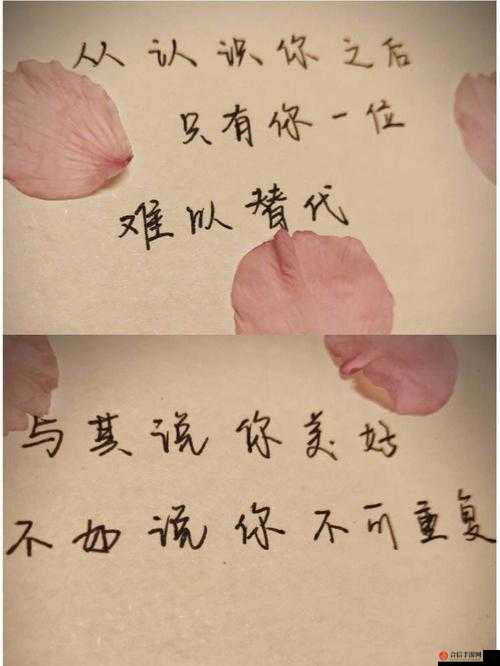 从认识你之后
只有你一位
难以替代
与其说你美好
不如说你不可重复
合信手游网